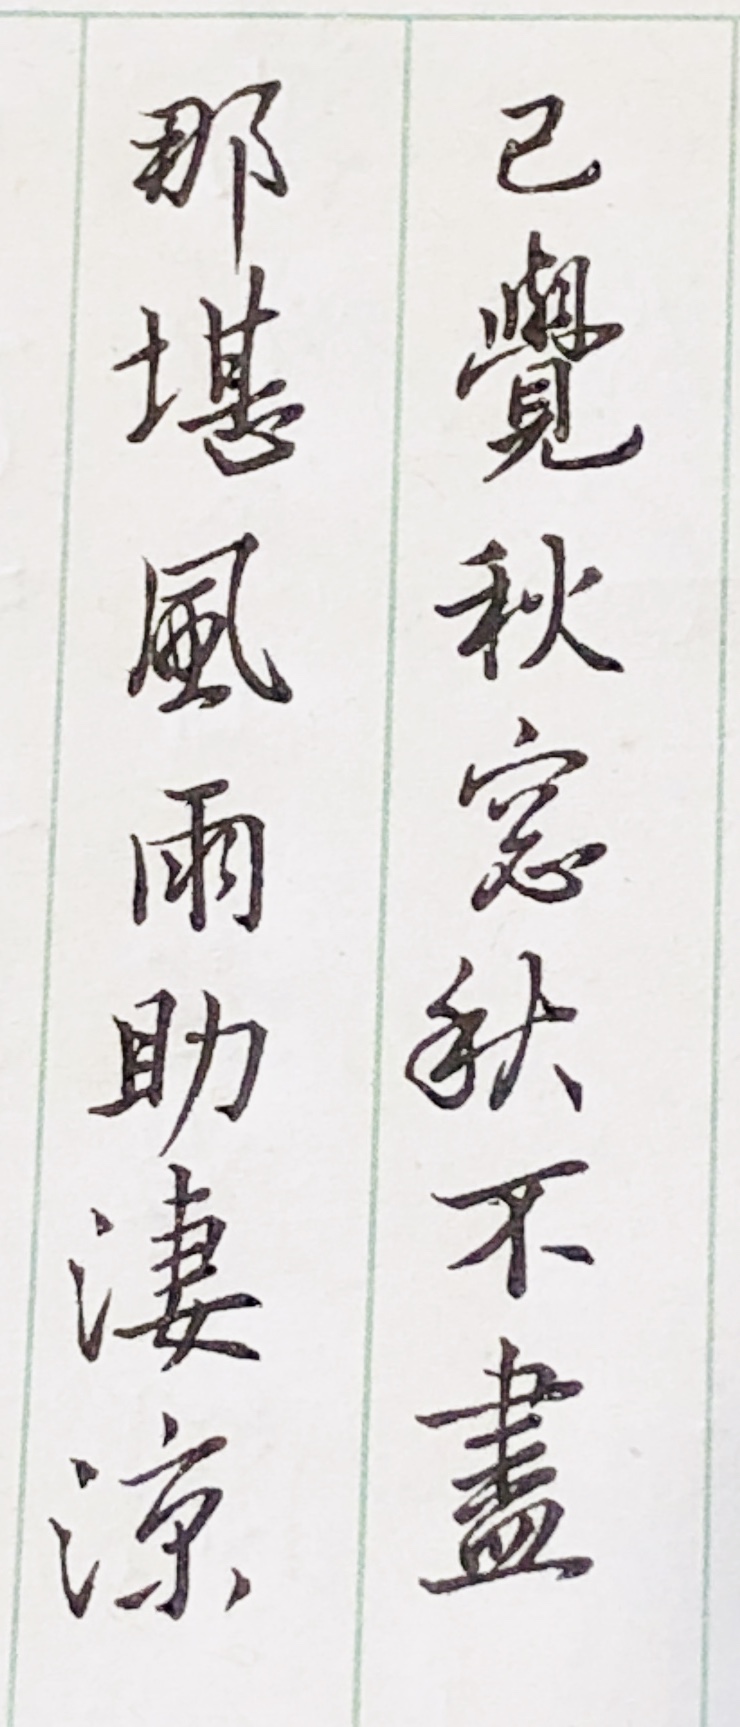 已覺秋窓秋不盡
那堪風雨助淒涼